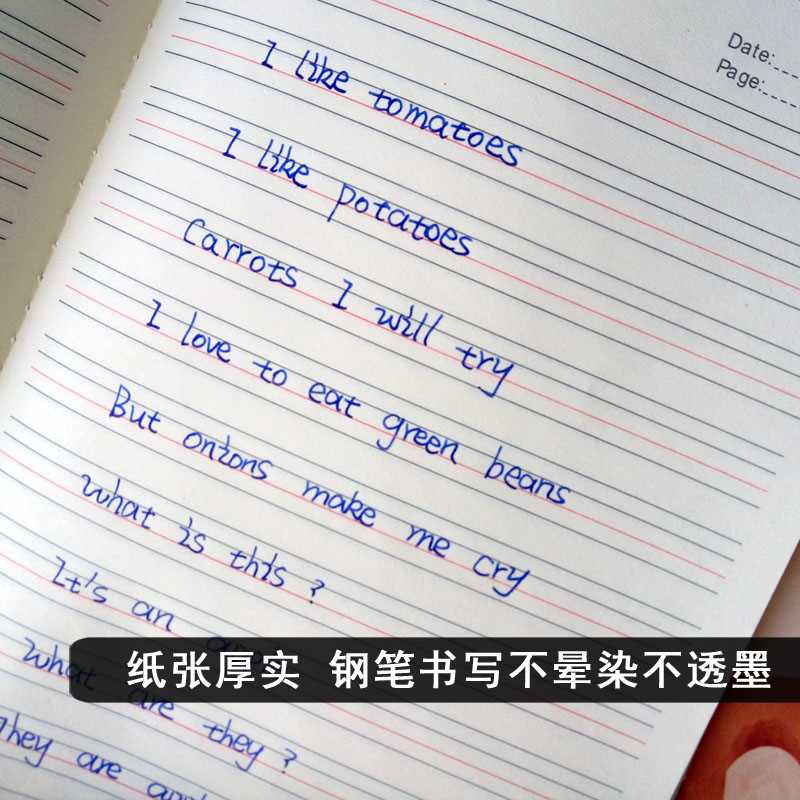 Date:
Page:
I like tomatoes
I like potatoes
Carrots I will try
I love to eat green beans
But onions make me cry
what is this ?
It's an
what are they ?
They are
纸张厚实 钢笔书写不晕染不透墨